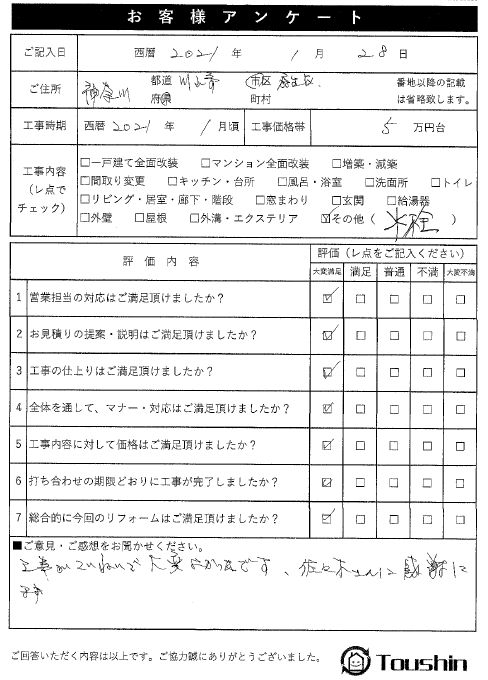 お客様アンケート
ご記入日 西暦 2021 年 1 月 28 日
ご住所 神奈川 都道府県 川崎 市区町村 麻生区 番地以降の記載は省略致します。
工事時期 西暦 2021 年 1 月頃 工事価格帯 5 万円台
工事内容（レ点でチェック）
□一戸建て全面改装 □マンション全面改装 □増築・減築
□間取り変更 □キッチン・台所 □風呂・浴室 □洗面所 □トイレ
□リビング・居室・廊下・階段 □窓まわり □玄関 □給湯器
□外壁 □屋根 □外溝・エクステリア ☑その他（水栓）
評価内容 評価（レ点をご記入ください）
大変満足 満足 普通 不満 大変不満
1 営業担当の対応はご満足頂けましたか？ ☑ □ □ □ □
2 お見積りの提案・説明はご満足頂けましたか？ ☑ □ □ □ □
3 工事の仕上りはご満足頂けましたか？ ☑ □ □ □ □
4 全体を通して、マナー・対応はご満足頂けましたか？ ☑ □ □ □ □
5 工事内容に対して価格はご満足頂けましたか？ ☑ □ □ □ □
6 打ち合わせの期限どおりに工事が完了しましたか？ ☑ □ □ □ □
7 総合的に今回のリフォームはご満足頂けましたか？ ☑ □ □ □ □
■ご意見・ご感想をお聞かせください。
工事がていねいで大変よかったです、佐々木さんに感謝して
ます
ご回答いただく内容は以上です。ご協力誠にありがとうございました。
Toushin